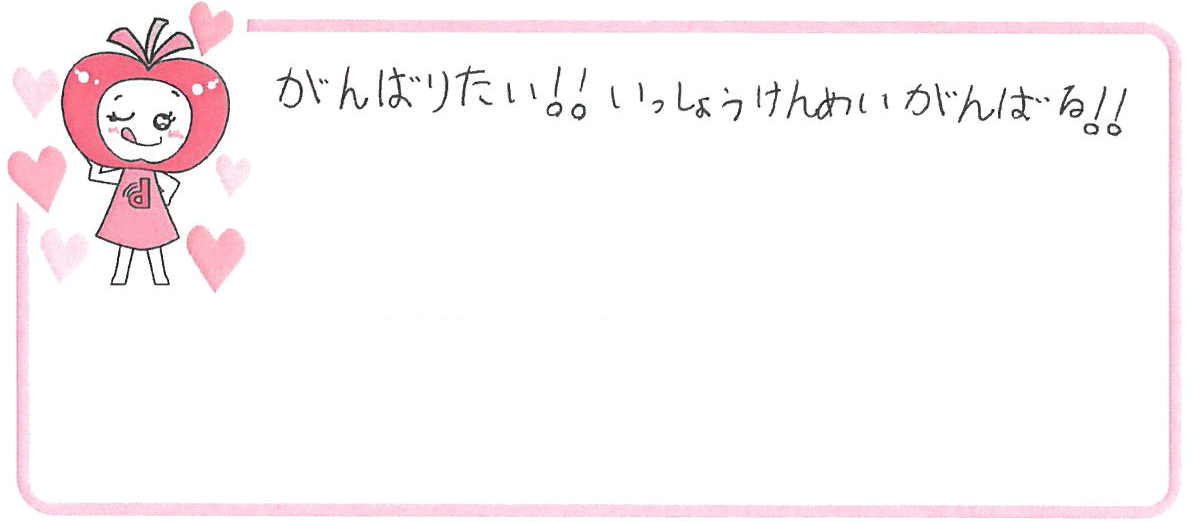 がんばりたい!! いっしょうけんめい がんばる!!
d